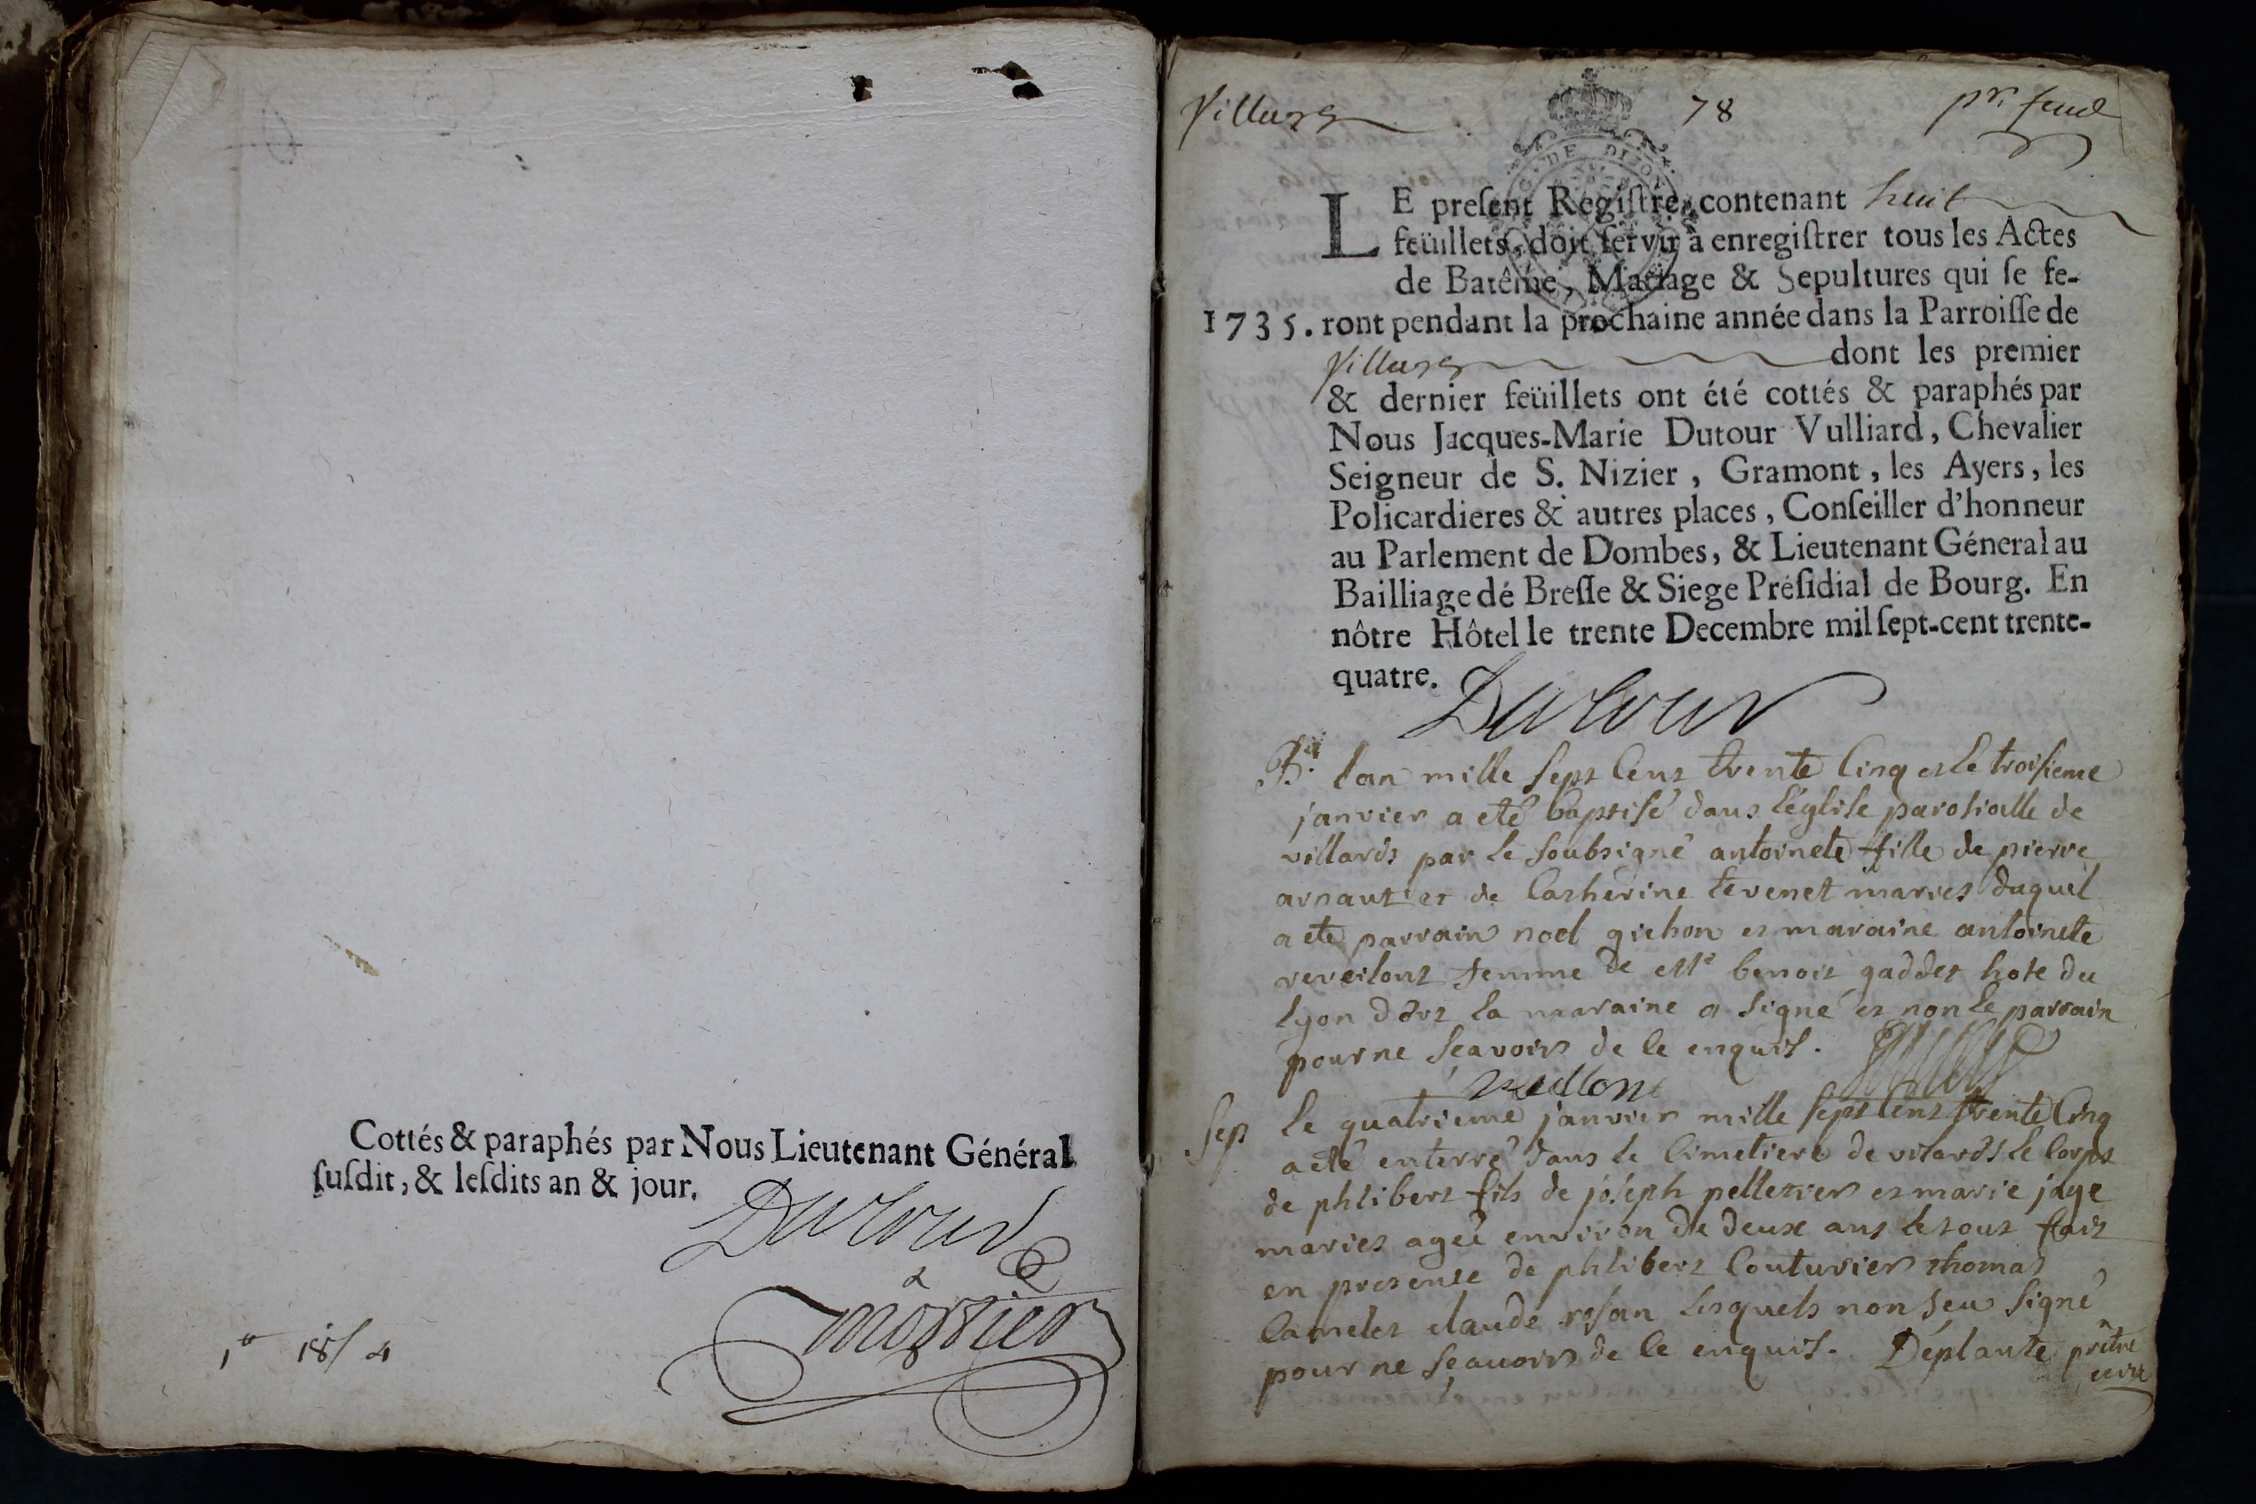 Cottés & paraphés par Nous Lieutenant Général
ſuſdit, & leſdits an & jour.
Dutour
morsier
1° 18/4
Villars
78
pr. feuil
GEN. DE DIJON
LE preſent Regiſtre, contenant huit
feüillets, doit ſervir à enregiſtrer tous les Actes
de Batême, Mariage & Sepultures qui ſe fe-
1735. ront pendant la prochaine année dans la Parroiſſe de
Villars dont les premier
& dernier feüillets ont été cottés & paraphés par
Nous Jacques-Marie Dutour Vulliard, Chevalier
Seigneur de S. Nizier, Gramont, les Ayers, les
Policardieres & autres places, Conſeiller d'honneur
au Parlement de Dombes, & Lieutenant Géneral au
Bailliage dé Breſſe & Siege Préſidial de Bourg. En
nôtre Hôtel le trente Decembre mil ſept-cent trente-
quatre.
Dutour
B. lan mille sept cent trente cinq et le troisieme
janvier a eté baptisé dans l'église parosialle de
villards par le soubsigné antoinete fille de pierre
arnaut et de Catherine tevenet maries duquel
a eté parrain noel gichon et maraine antoinete
reveilont femme de Mre benoit gaddet hote du
lyon dort la maraine a signé et non le parrain
pour ne sçavoir de ce enquis.
reveillont
Sep le quatrieme janvier mille sept cent trente cinq
a eté enterré dans le cimetiere de vilards le corps
de philibert fils de joseph pelletier et marie jage
maries ageé environ de deux ans le tout fait
en presence de philibert couturier thomas
lamelet claude rosan lesquels non seu signé
pour ne sçauoir de ce enquis. Déplante prêtre
curé